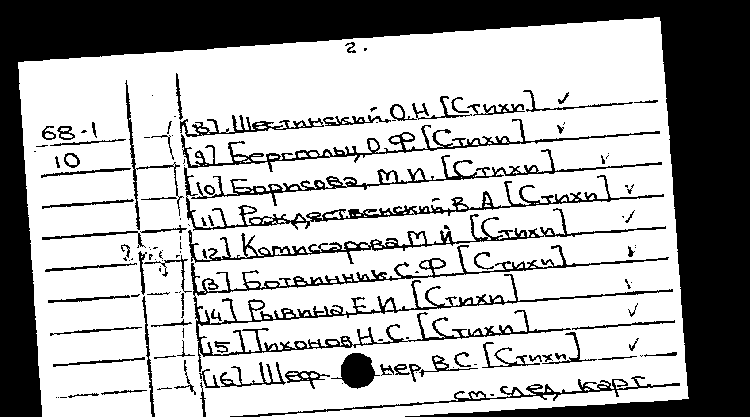 2.
68-1
10
[8]. Шестинский, О.Н. [Стихи] ✓
[9] Берггольц, О.Ф. [Стихи] ✓
[10] Борисова, М.И. [Стихи] ✓
[11] Рождественский, В.А [Стихи] ✓
[12] Комиссарова, М.И [Стихи] ✓
[13] Ботвинник, С.Ф [Стихи]. ✓
[14] Рывина, Е.И. [Стихи] ✓
[15] Тихонов, Н.С. [Стихи] ✓
[16]. Шеф- нер, В.С. [Стихи] ✓
см. след. карт.